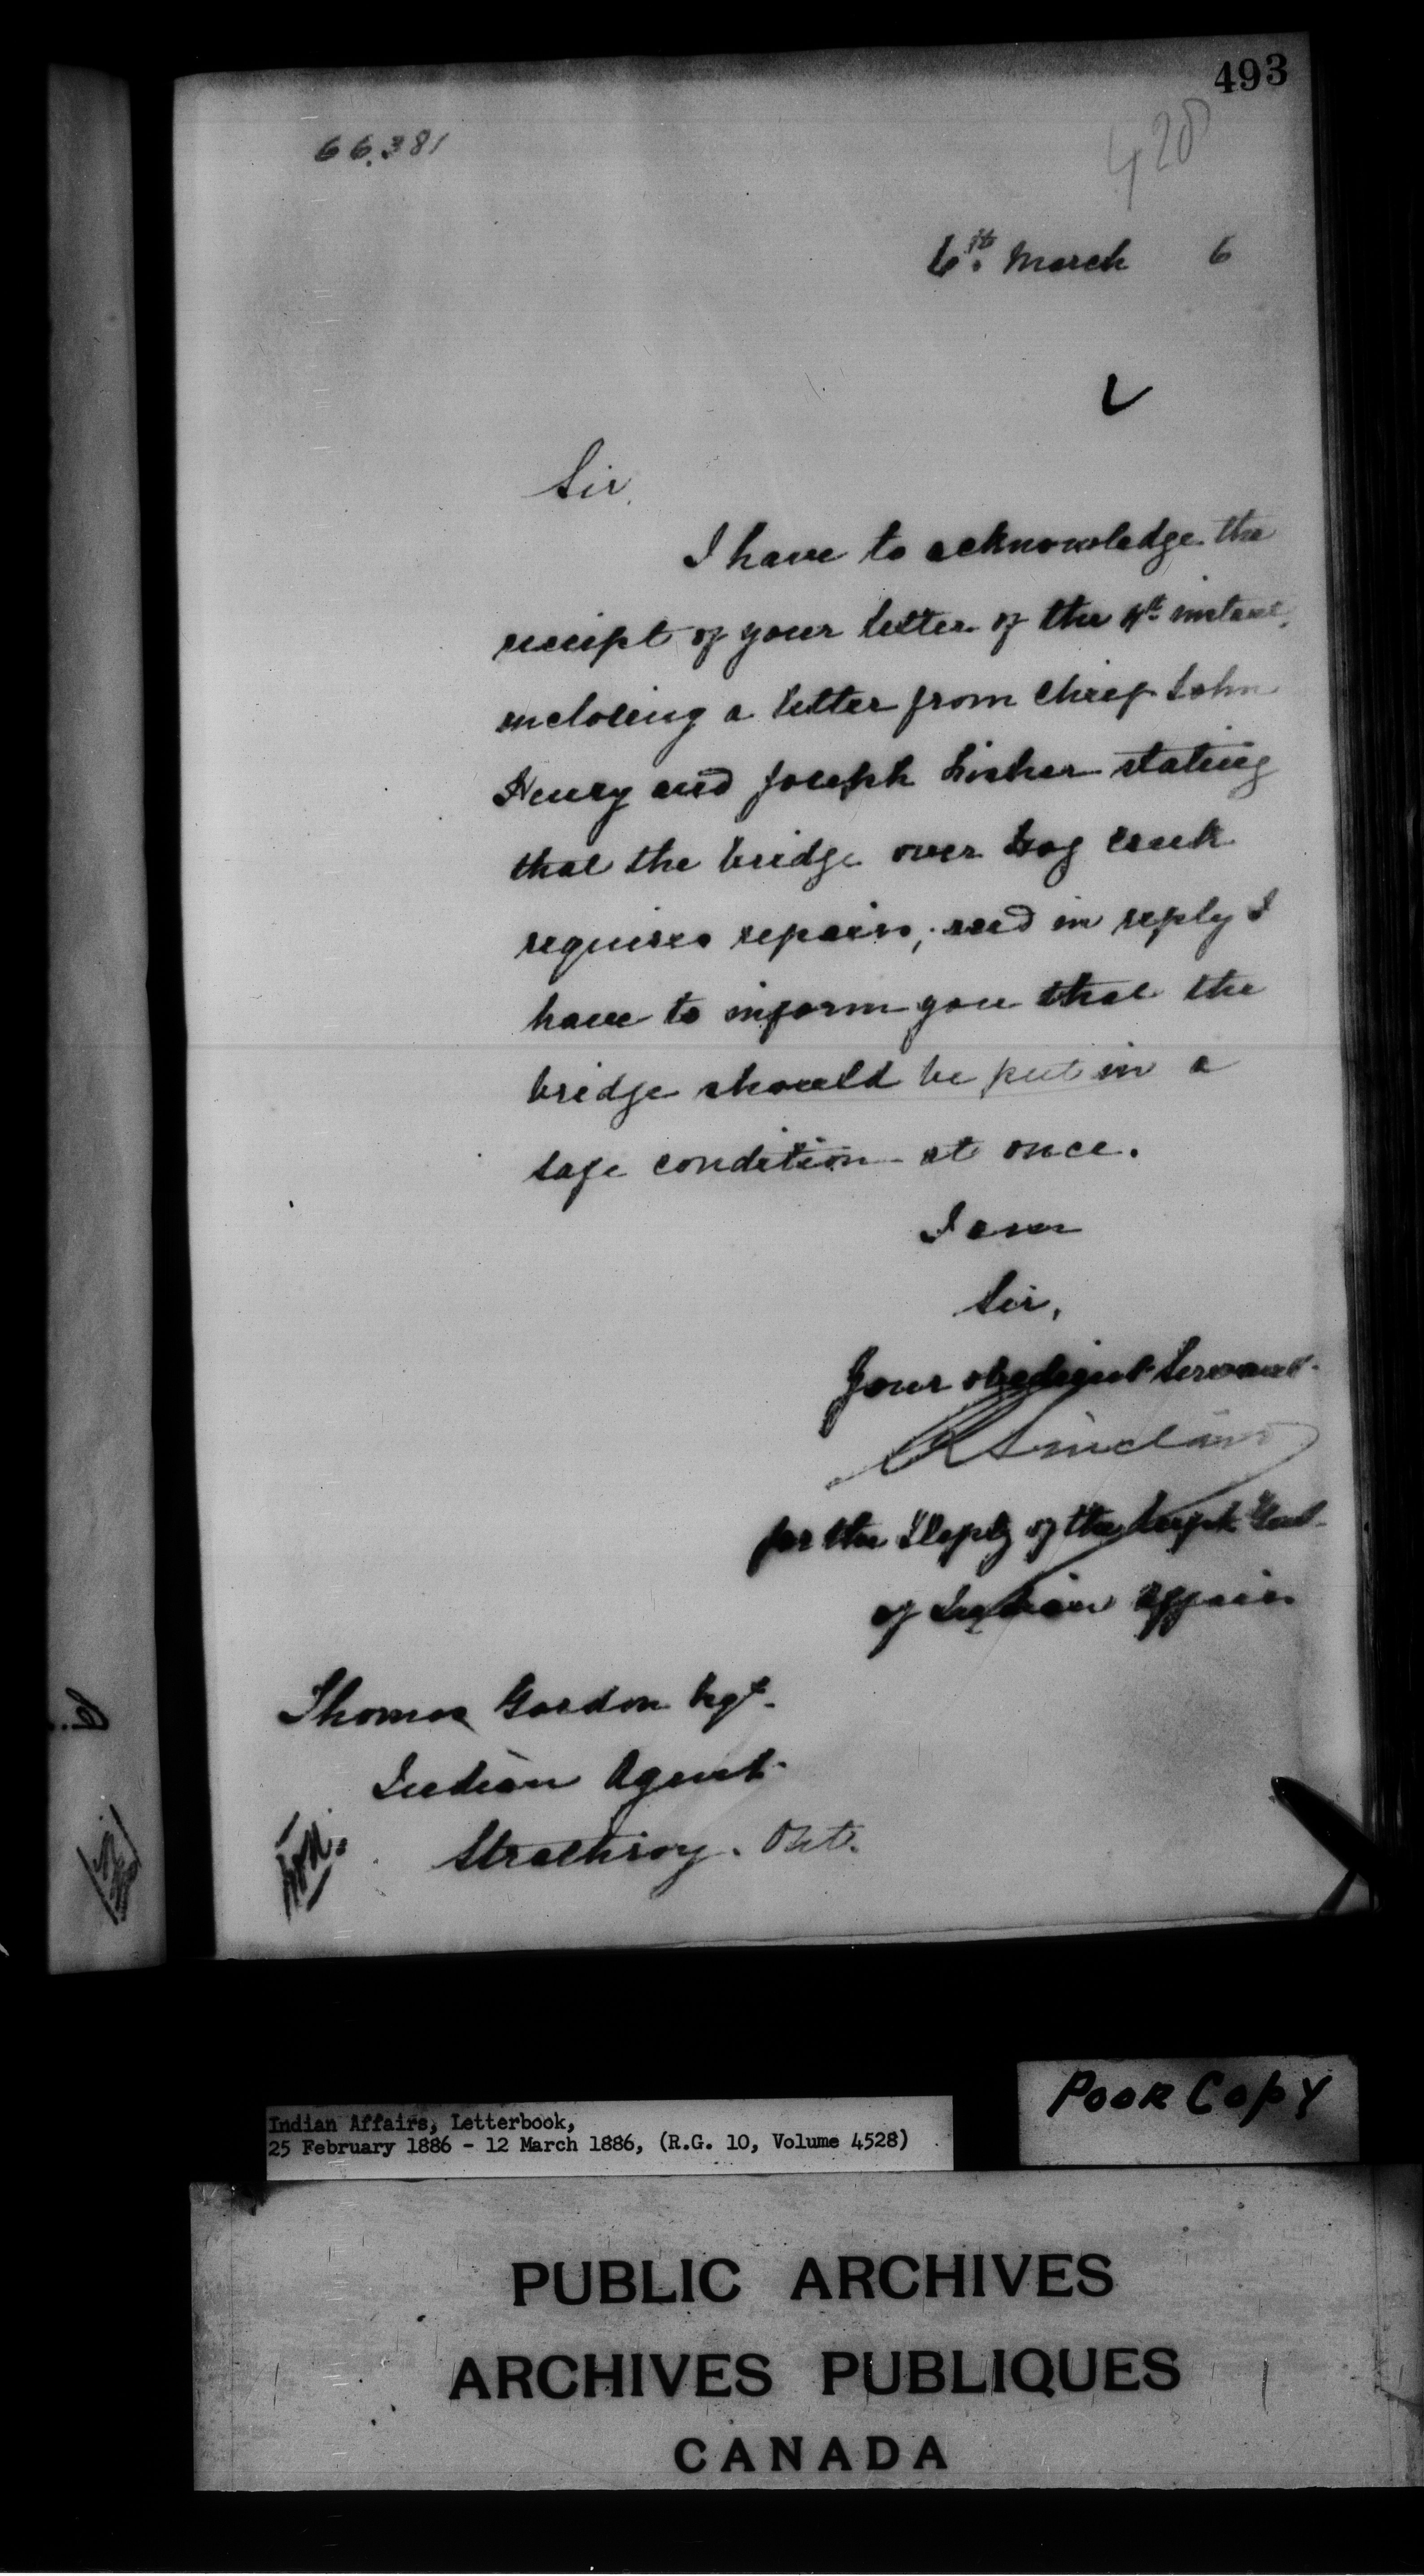 493
66.381
428
6th. March 6
Sir,
I have to acknowledge the
receipt of your letter of the 4th instant,
inclosing a letter from Chief John
Henry and Joseph Fisher stating
that the bridge over Hog creek
requires repairs, and in reply I
have to inform you that the
bridge should be put in a
safe condition at once.
I am
Sir,
Your obedient Servant
R Sinclair
for the Depty of the Supt. Genl.
of Indian Affairs
Thomas Gordon Esqr.
Indian Agent
Strathroy. Ont.
Poor Copy
Indian Affairs, Letterbook,
25 February 1886 - 12 March 1886, (R.G. 10, Volume 4528)
PUBLIC ARCHIVES
ARCHIVES PUBLIQUES
CANADA